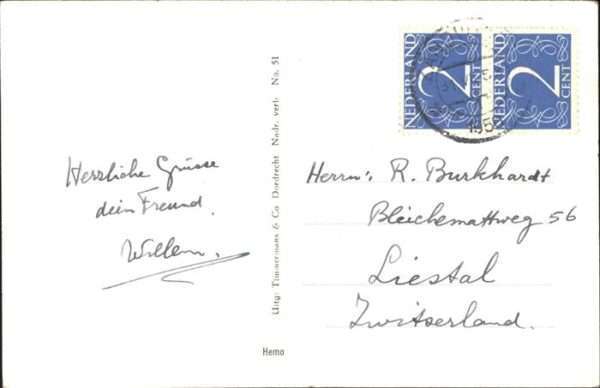 Herrliche Grüsse
dein Freund.
Willem.
Uitg: Timmermans & Co Dordrecht Nadr. verb. No. 51
Hemo
NEDERLAND
2
CENT
NEDERLAND
2
CENT
Herrn: R. Burkhardt
Bleichemattweg 56
Liestal
Zwitserland.